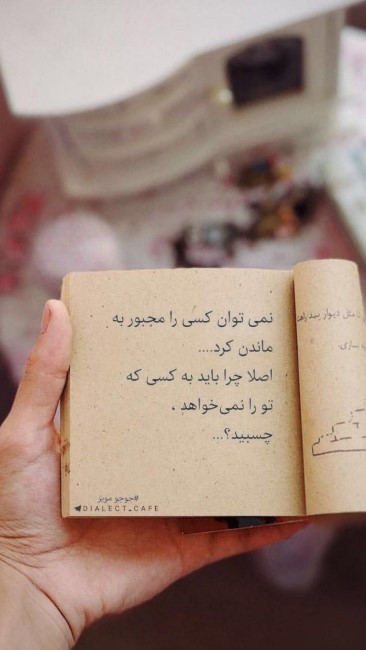 نمی توان کسی را مجبور به
ماندن کرد....
اصلا چرا باید به کسی که
تو را نمی‌خواهد ،
چسبید؟...
#جوجو مویز
DIALECT_CAFE
مثل دیوار
سازی.